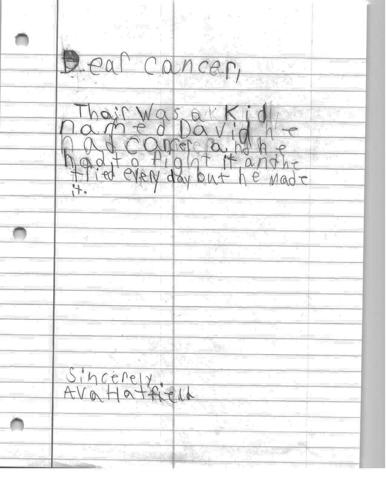 Dear cancer,
Thair was a Kid
named David he
had cancer and he
had to fight it and he
tried every day but he made
it.
Sincerely,
Ava Hatfield